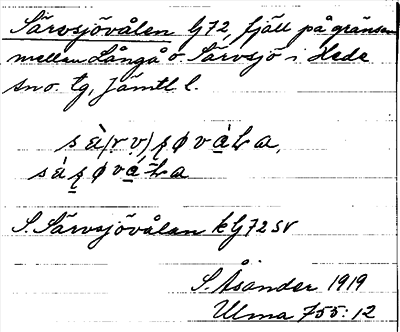 Särvsjövålen G72, fjäll på gränsen
mellan Långå o. Särvsjö i Hede
sn o. tg, Jämtl. l.
sà(rv)ʂøvàƚa,
sàʂøvàƚa
S. Särvsjövålen kG72 sv
S. Åsander 1919
Ulma 755:12